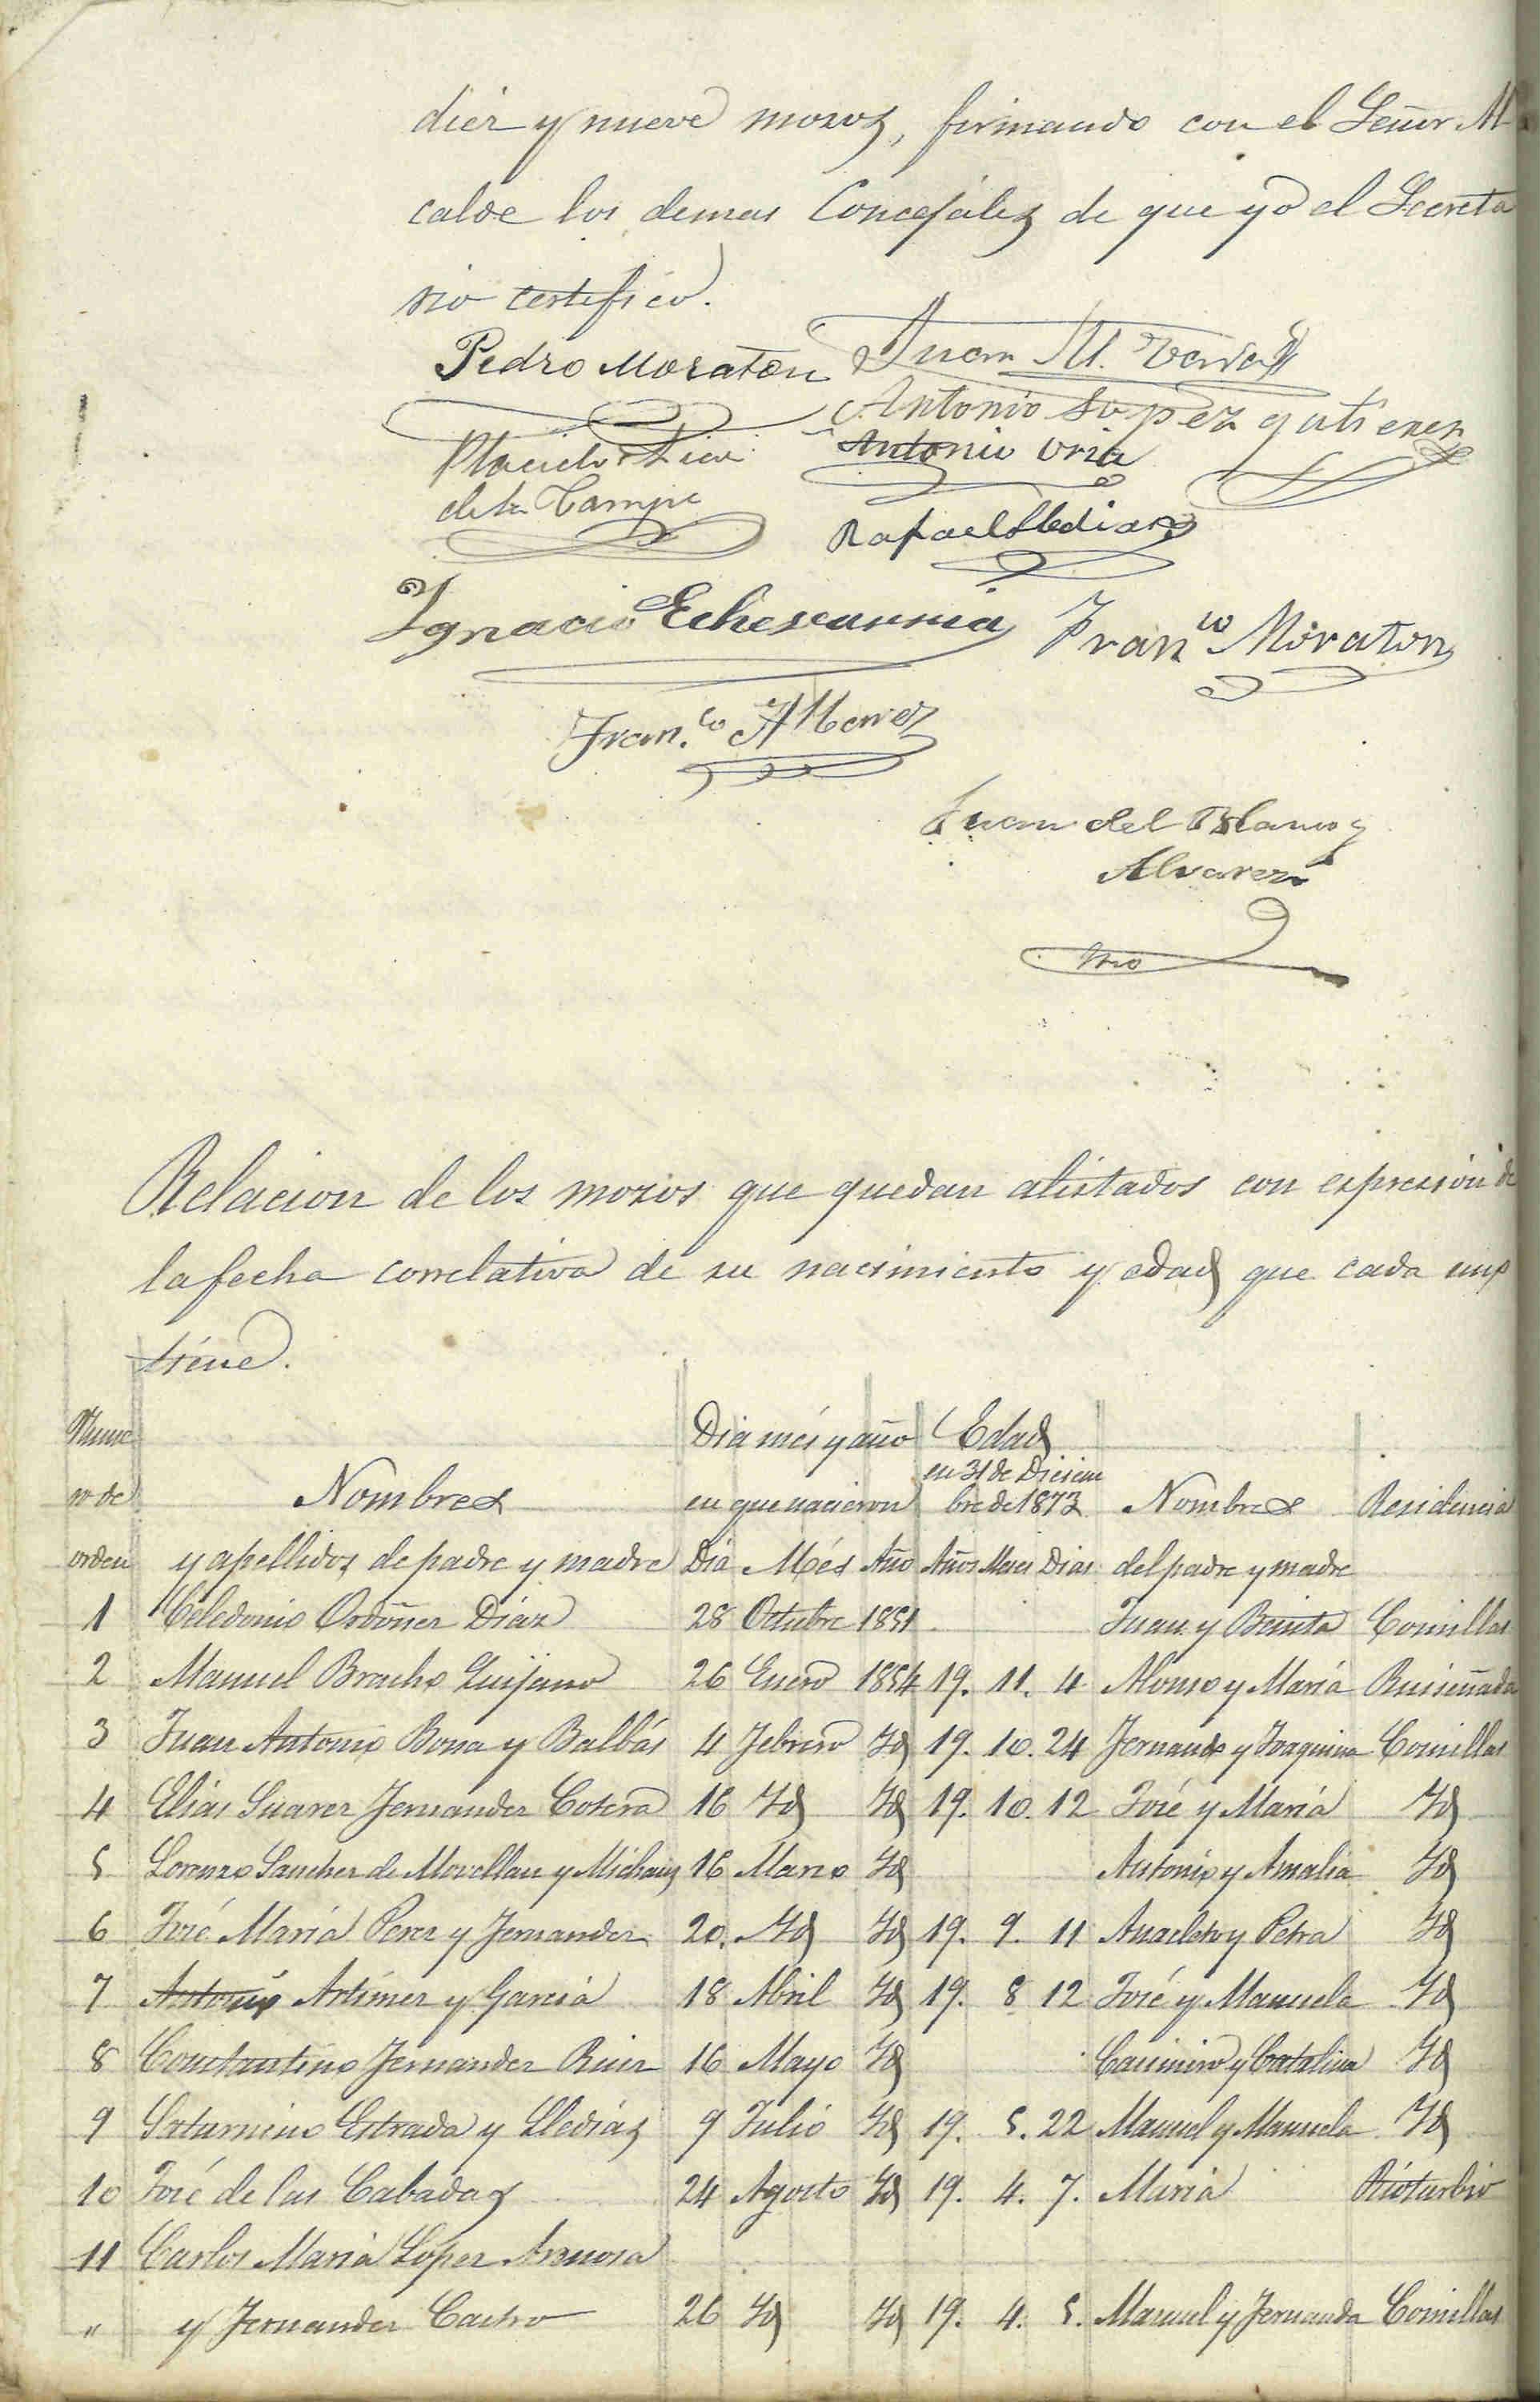 diez y nueve mozos, firmando con el Señor Al
calde los demas Concejales de que yo el Secreta
rio certifico.
Pedro Moraton Juan M.
Antonio Lopez gutierrez
Placido Antonio Uria
de la Campa
Rafael Lledias
Ignacio Echevarria Fran.co Moraton
Fran.co
Juan del Blanco y
Alvarez
Srio
Relacion de los mozos que quedan alistados con espresion de
la fecha correlativa de su nacimiento y edad que cada uno
tiene.
Nume Dia mes y año Edad
ro de Nombres en que nacieron en 31 de Diciem bre de 1873 Nombres Residencia
orden y apellidos de padre y madre Dia Més Año Años Meses Dias del padre y madre
1 Celedonio Ordoñez Diaz 28 Octubre 1851 Juan y Benita Comillas
2 Manuel Bracho Quijano 26 Enero 1854 19. 11. 4 Alonso y María Ruiseñada
3 Juan Antonio Bona y Balbás 4 Febrero Id 19. 10. 24 Fernando y Joaquina Comillas
4 Elias Suarez Fernandez Cotera 16 Id Id 19. 10. 12 José y María Id
5 Lorenzo Sanchez de Movellan y 16 Marzo Id Antonio y Amalia Id
6 José María Perez y Fernandez 20. Id Id 19. 9. 11 Anacleto y Petra Id
7 Antonio Artimez y García 18 Abril Id 19. 8 12 José y Manuela Id
8 Constantino Fernandez Ruiz 16 Mayo Id Casimiro y Catalina Id
9 Saturnino Estrada y Lledías 9 Julio Id 19. 5. 22 Manuel y Manuela Id
10 José de las Cabadas 24 Agosto Id 19. 4. 7. María Rioturbio
11 Carlos María Lopez Arenosa
" y Fernandez Castro 26 Id Id 19. 4. 5. Manuel y Fernanda Comillas